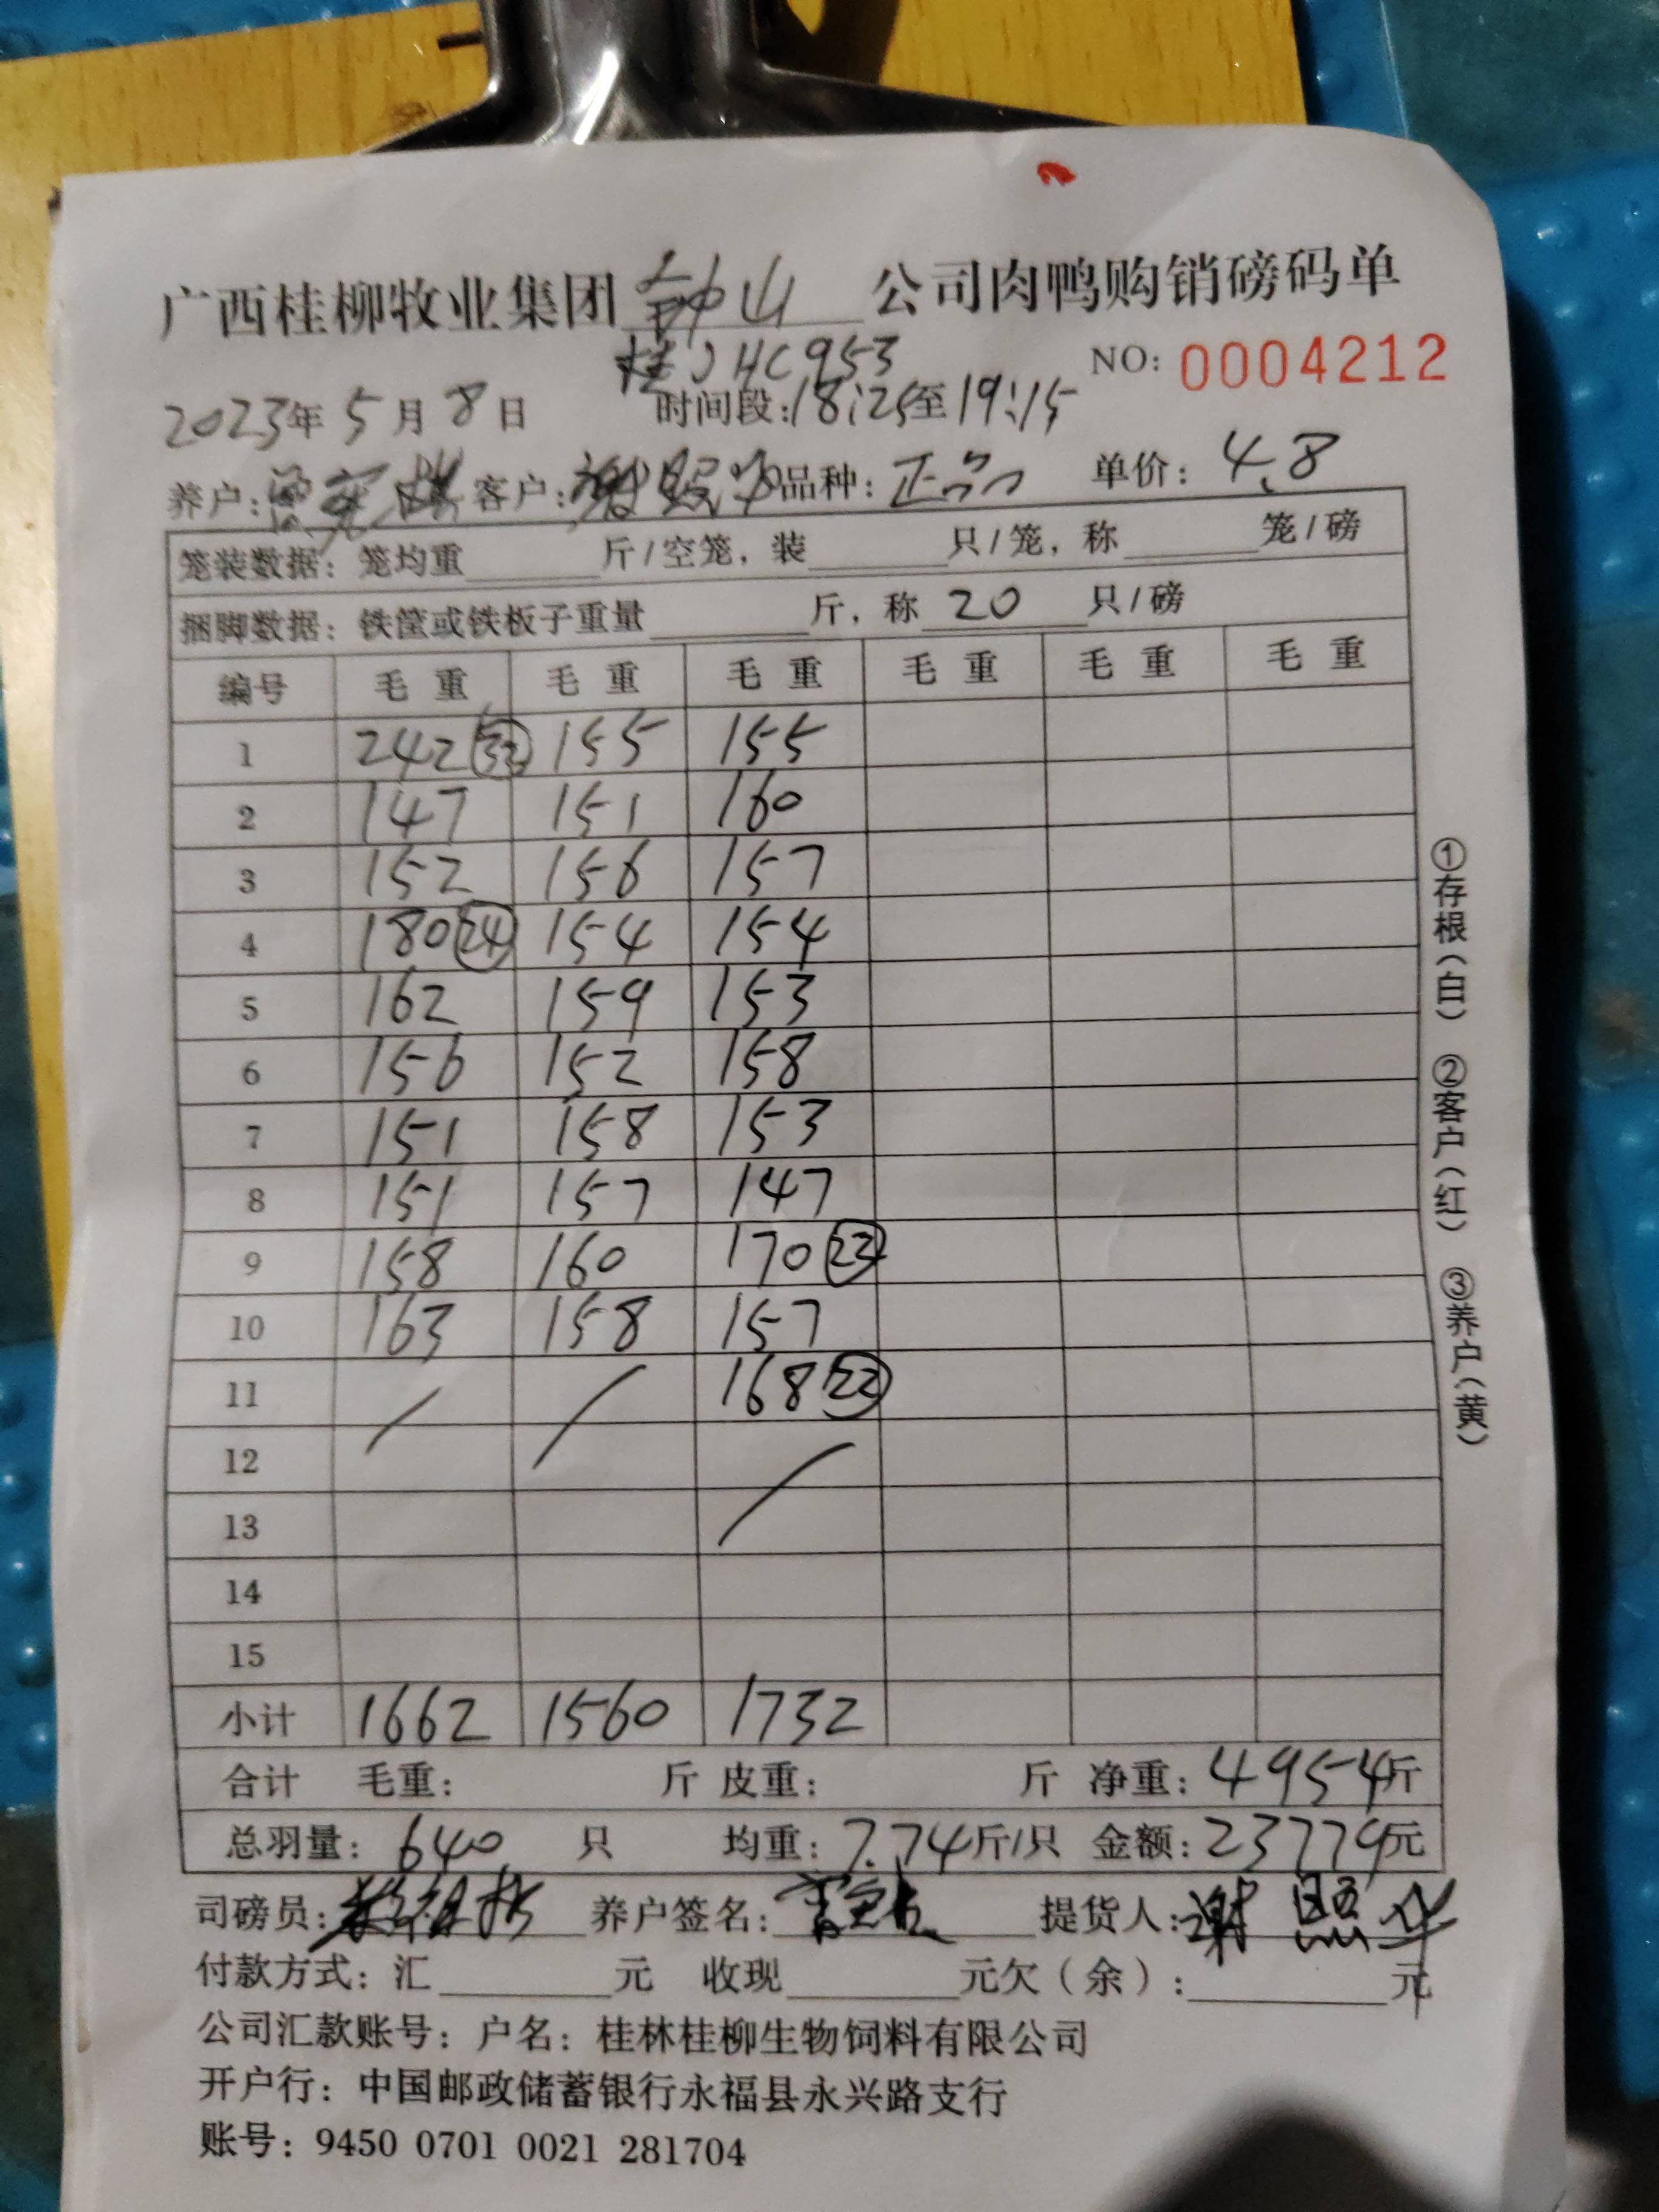 广西桂柳牧业集团 钟山 公司肉鸭购销磅码单
桂JHC953 NO: 0004212
2023年 5月 8日 时间段:18:25至19:15
养户: 客户:谢照华 品种:正品 单价:4.8
笼装数据:笼均重 斤/空笼,装 只/笼,称 笼/磅
捆脚数据:铁筐或铁板子重量 斤,称 20 只/磅
编号 毛重 毛重 毛重 毛重 毛重 毛重
1 242 32 155 155
2 147 151 160
3 152 156 157
4 180 24 154 154
5 162 159 153
6 156 152 158
7 151 158 153
8 151 157 147
9 158 160 170 22
10 163 158 157
11 168 22
12
13
14
15
小计 1662 1560 1732
合计 毛重: 斤 皮重: 斤 净重:4954斤
总羽量:640 只 均重:7.74斤/只 金额:23779元
司磅员: 养户签名: 提货人:谢照华
付款方式:汇 元 收现 元欠(余): 元
公司汇款账号:户名:桂林桂柳生物饲料有限公司
开户行:中国邮政储蓄银行永福县永兴路支行
账号:9450 0701 0021 281704
①存根(白) ②客户(红) ③养户(黄)